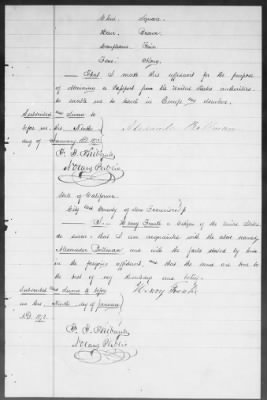 Chin Square.
Hair Brown
Complexion Fair
Face Oblong.
That I make this affidavit for the purpose
of obtaining a Passport from the United States authorities
to enable me to travel in Europe and elsewhere.
Subscribed and Sworn to
before me this Ninth
day of January A.D. 1872.
Alexander
Notary Public
State of California.
City and County of San Francisco
I, Henry a citizen of the United States
do swear that I am acquainted with the above named
Alexander and with the facts stated by him
in the foregoing affidavit and that the same are true to
the best of my knowledge and belief.
Subscribed and Sworn to before
me this Ninth day of January
A.D. 187
Henry
Notary Public